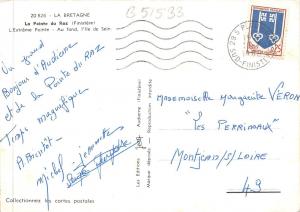 20 826 - LA BRETAGNE
La Pointe du Raz (Finistère)
L'Extrême Pointe - Au fond, l'Ile de Sein
B 51533
Un grand
Bonjour d'Audierne
et de la Pointe du RAZ
Temps magnifique
A Bientôt
Michel Jeannette
Mademoiselle Marguerite VERON
"Les Perrineaux"
Montjean s/ LOIRE
49
Collectionnez les cartes postales
Les Editions
Audierne (Finistère)
Marque déposée
Reproduction Interdite